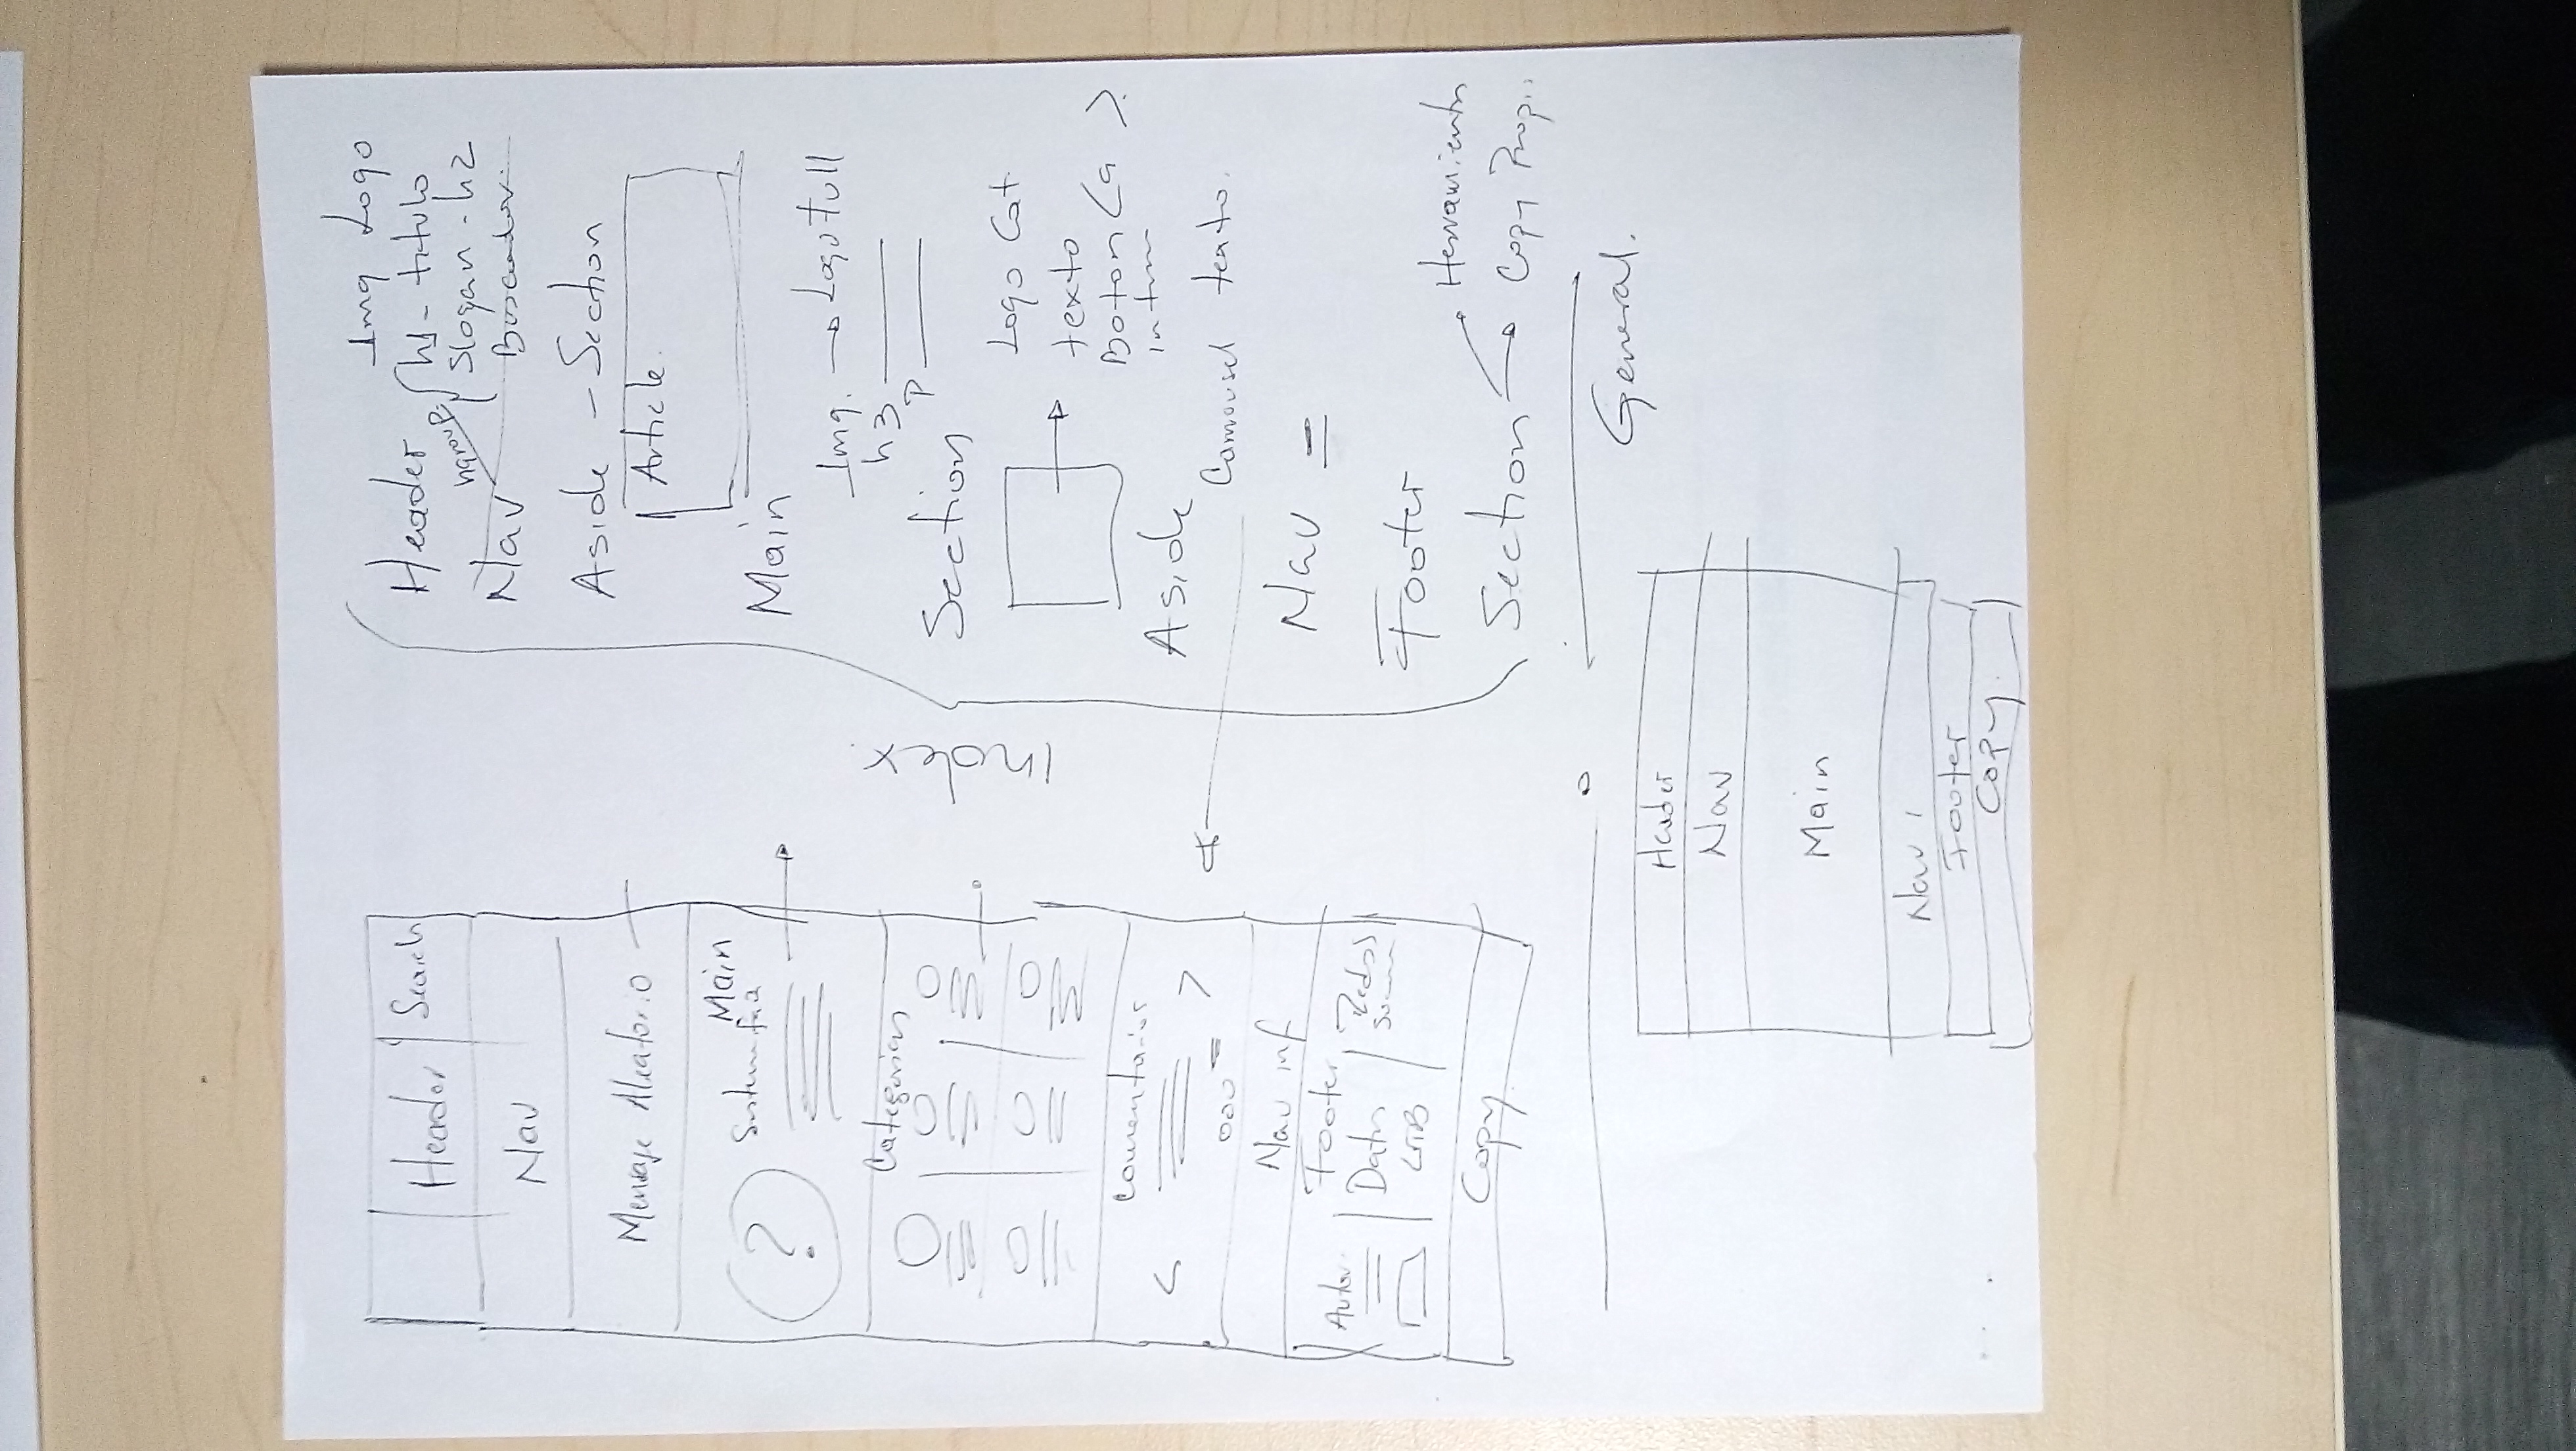 Header
Search
Nav
Mensaje Aleatorio
Main
?
Categorias
Comentarios
< >
Nav inf
Footer
Autor
Datos
Redes
Copy
Index.
Header
hgroup
Img Logo
h1 - titulo
Slogan - h2
Buscador
Nav
Aside - Section
Article.
Main
Img. → Logo Full
h3
P
Section
Logo Cat.
texto
Boton <a >
Aside
Carrousel texto.
Nav =
Footer
Section
Herramientas
Copy Prop..
General.
Header
Nav
Main
Nav i
Footer
Copy.